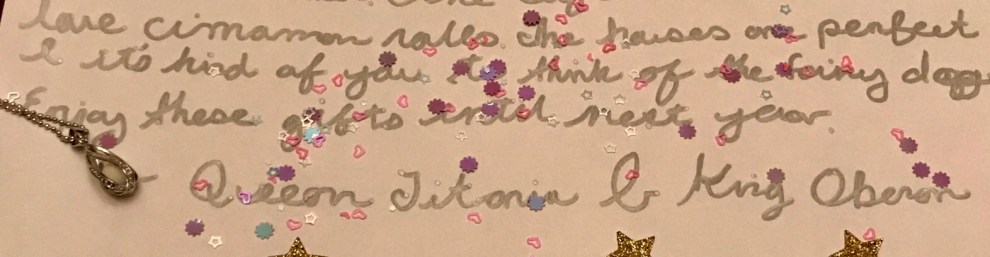 love cinnamon rolls. The houses are perfect
& it's kind of you to think of the fairy dogs
Enjoy these gifts until next year.
- Queen Titania & King Oberon